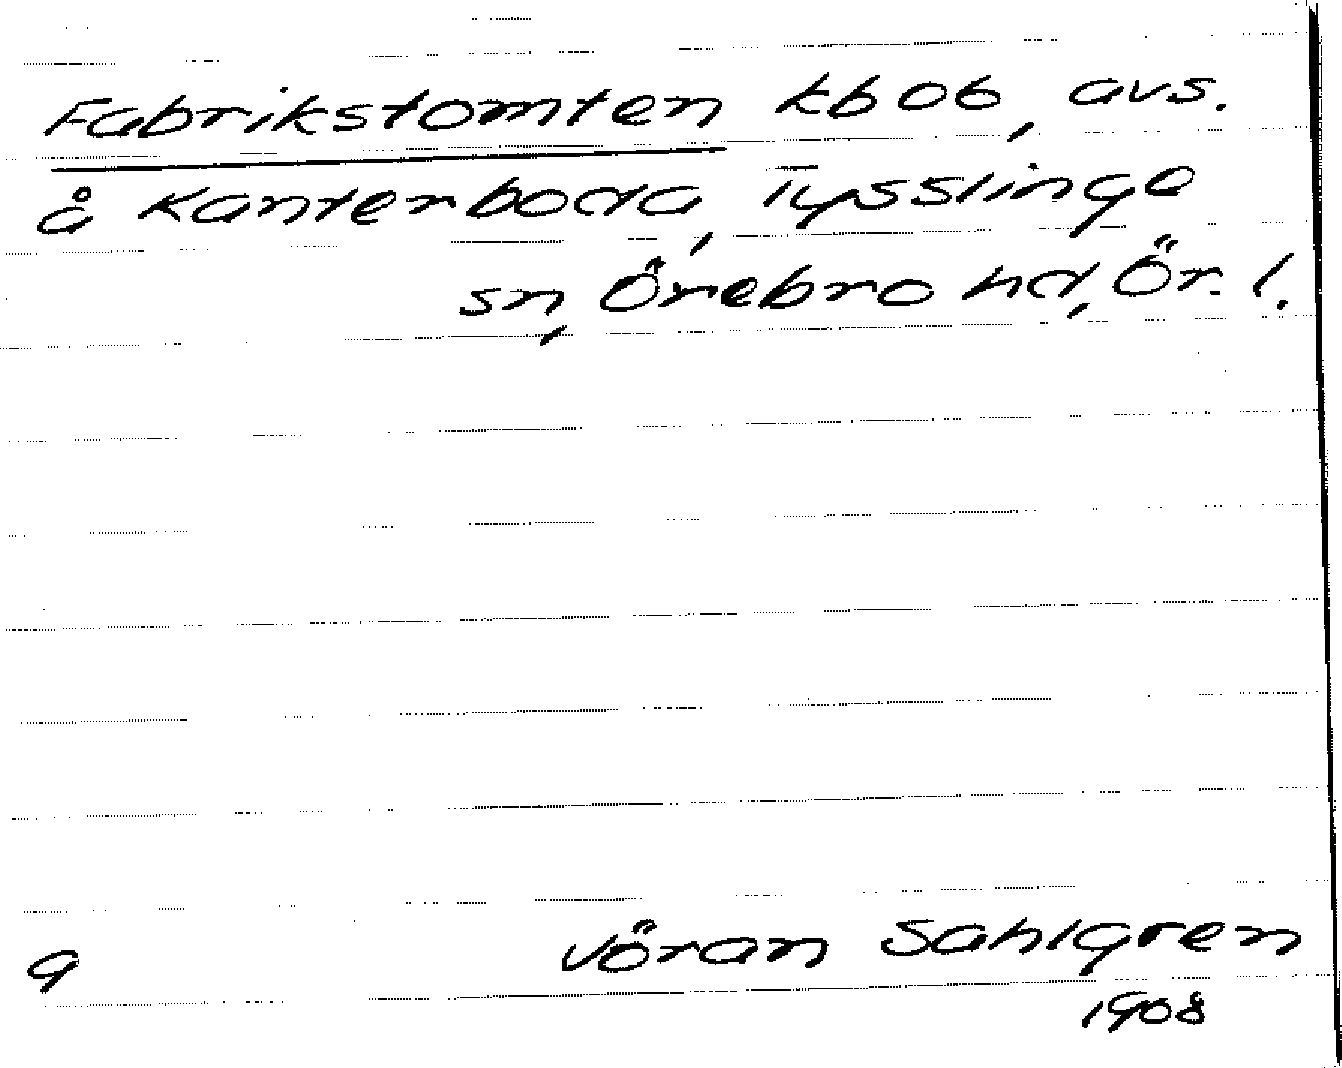 Fabrikstomten kb 06, avs.
å Kanterboda, Tysslinge
sn, Örebro hd, Ör. l.
9
Jöran Sahlgren
1908